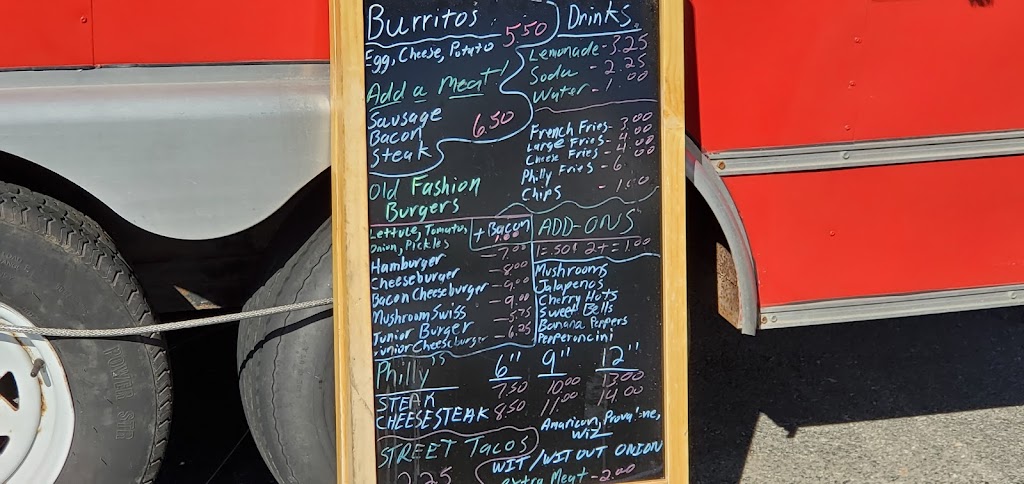 Burritos
5.50
Egg, Cheese, Potato
Add a meat!
Sausage
Bacon
Steak
6.50
Drinks
Lemonade - 3.25
Soda - 2.25
Water - 1.00
French Fries - 3.00
Large Fries - 4.00
Cheese Fries - 4.00
Philly Fries - 6.00
Chips - 1.00
Old Fashion
Burgers
Lettuce, Tomatos
Onion, Pickles
+ Bacon
1.00
Hamburger - 7.00
Cheeseburger - 8.00
Bacon Cheeseburger - 9.00
Mushroom Swiss - 9.00
Junior Burger - 5.75
Junior Cheeseburger - 6.25
ADD-ONS
1=.50¢ 2+=1.00
Mushrooms
Jalapenos
Cherry Hots
Sweet Bells
Banana Peppers
Pepperoncini
Philly 6" 9" 12"
STEAK 7.50 10.00 13.00
CHEESESTEAK 8.50 11.00 14.00
American, Provalone,
Wiz
WIT/WITOUT ONION
extra Meat - 2.00
STREET TACOS
2.25